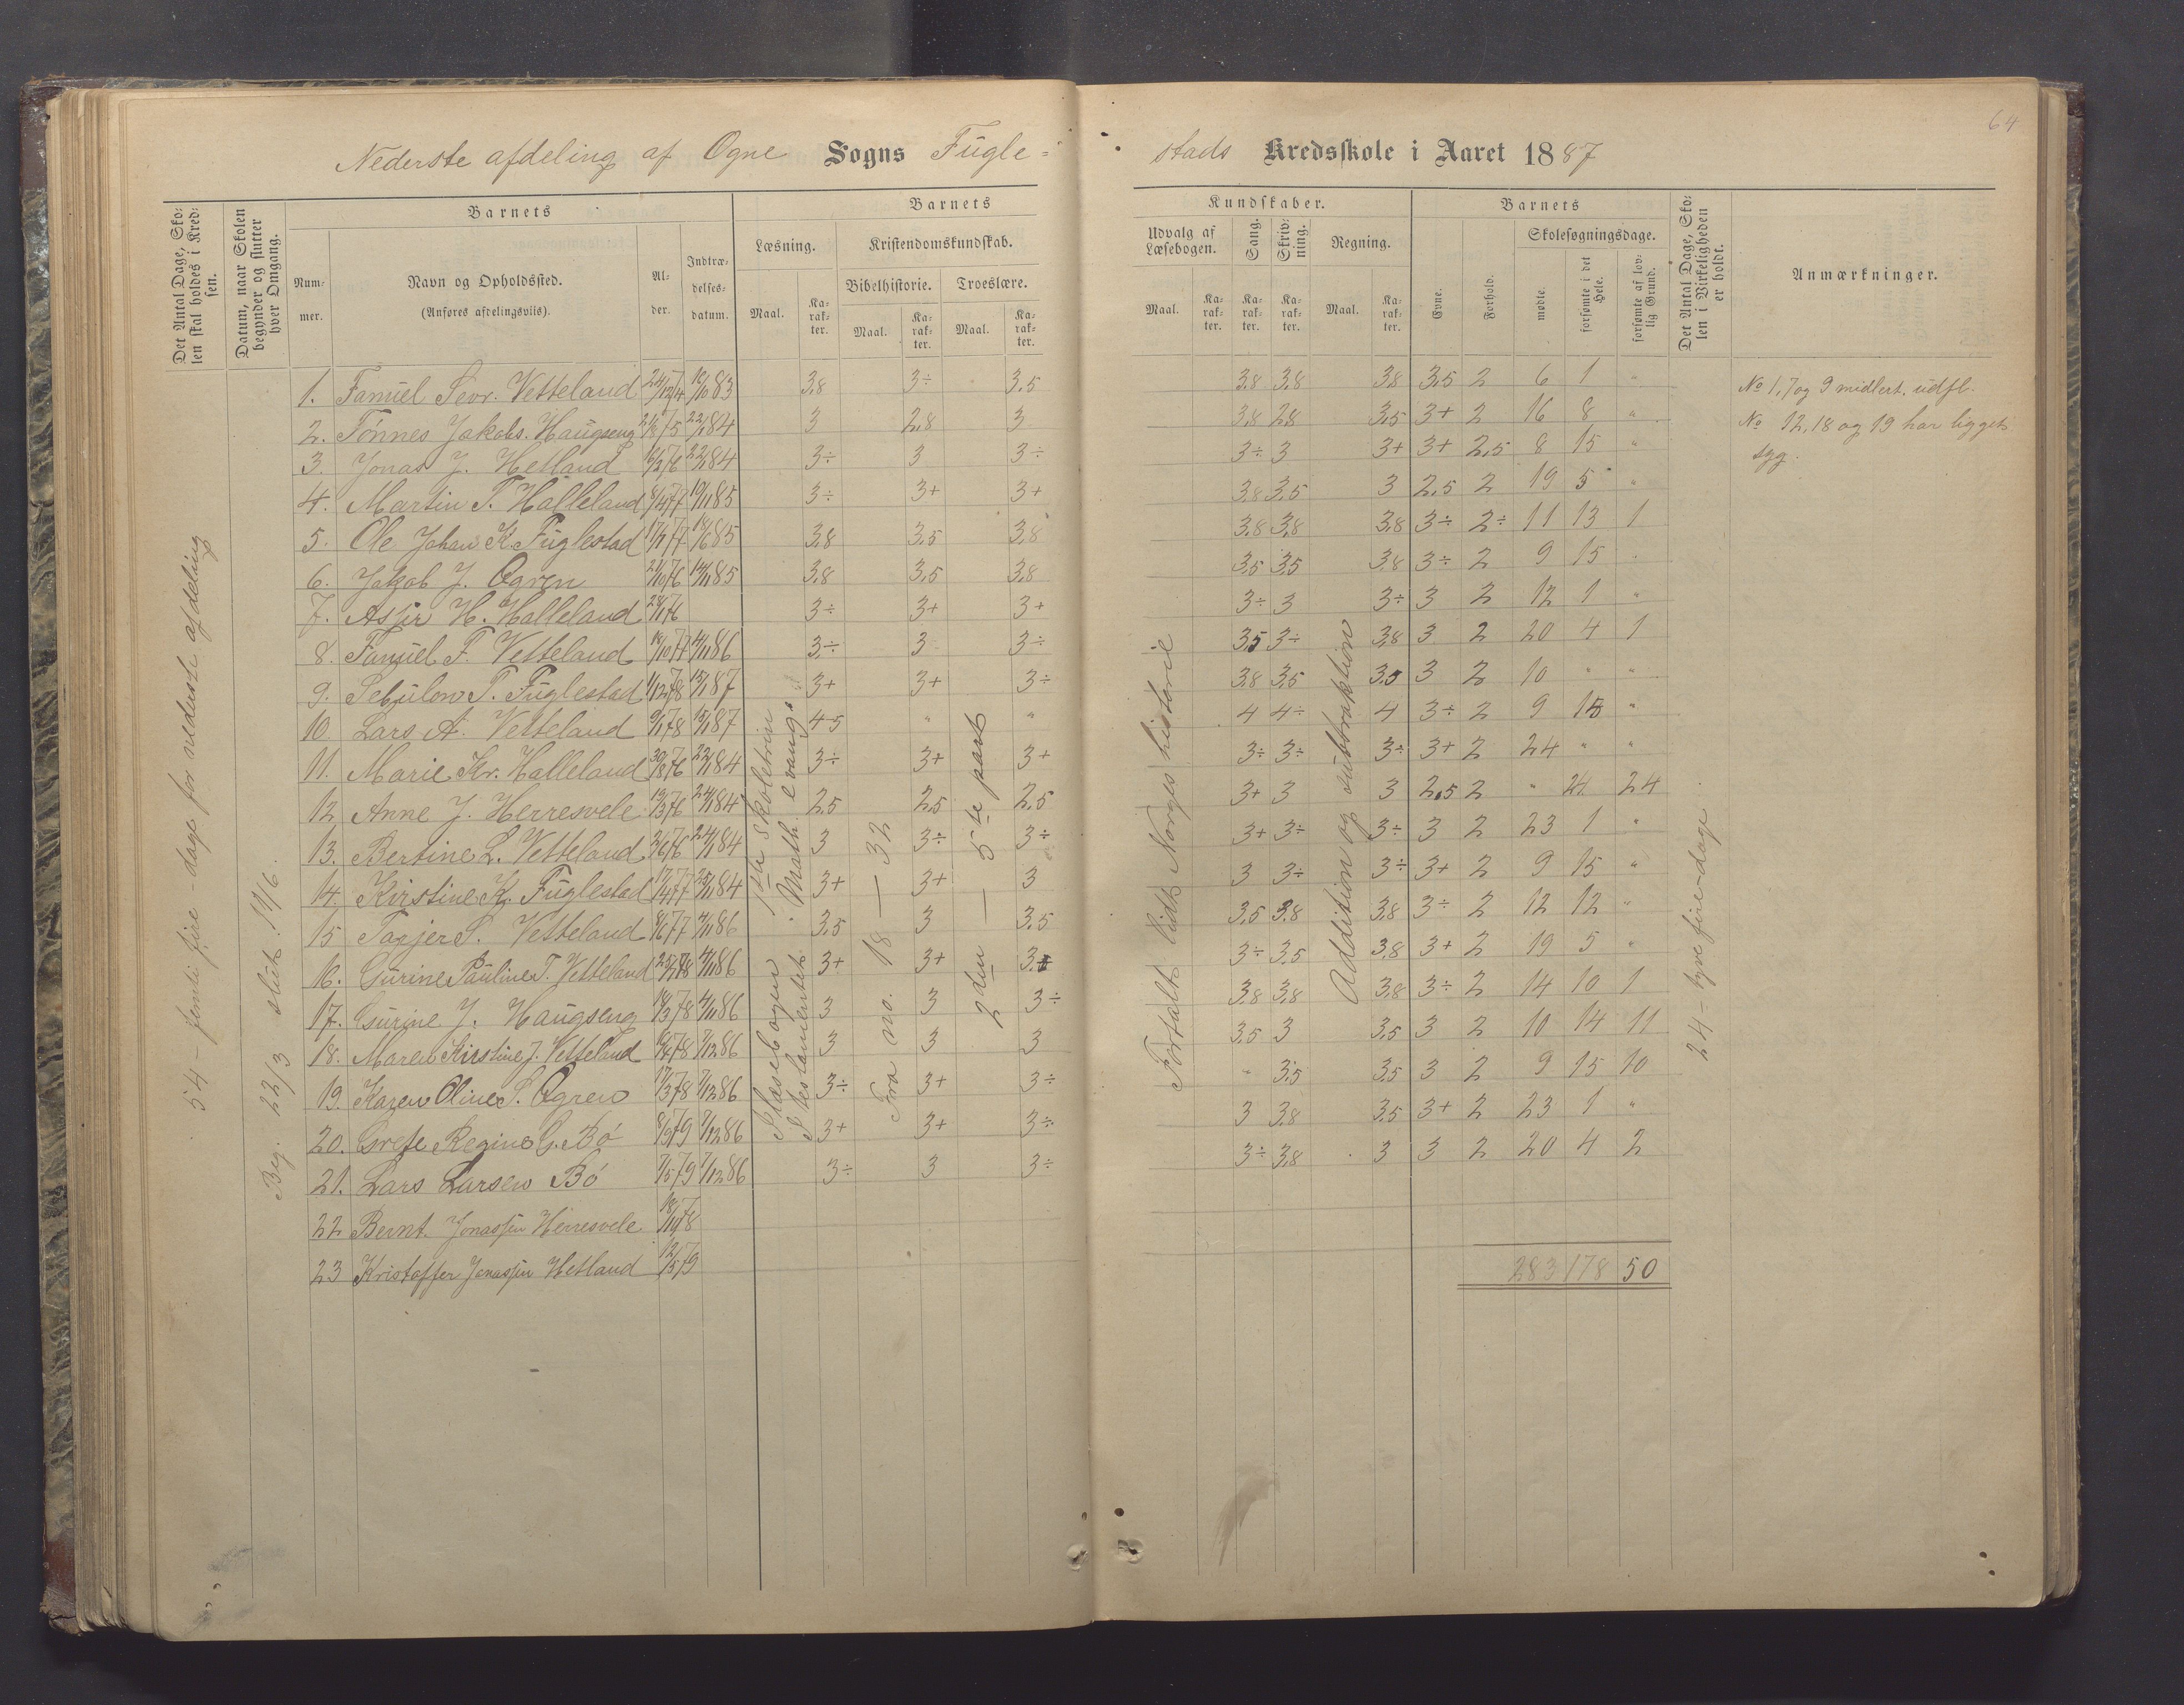 64
Nederste afdeling af Ogne Sogns Fugle=
stads Kredsskole i Aaret 1887
Det Antal Dage, Skolen skal holdes i Kredsen.
Datum, naar Skolen begynder og slutter hver Omgang.
Barnets
Nummer.
Navn og Opholdssted.
(Anføres afdelingsviis).
Alder.
Indtrædelsesdatum.
Barnets
Læsning.
Kristendomskundskab.
Bibelhistorie. Troeslære.
Maal. Karakter. Maal. Karakter. Maal. Karakter.
Kundskaber.
Udvalg af Læsebogen. Sang. Skrivning. Regning.
Maal. Karakter. Karakter. Karakter. Maal. Karakter.
Barnets
Evne. Forhold.
Skolesøgningsdage.
mødte. forsømte i det Hele. forsømte af lovlig Grund.
Det Antal Dage, Skolen i Virkeligheden er holdt.
Anmærkninger.
54 - femti fire - dage for nederste afdeling
Beg. 22/3 slut 14/6.
I læsebogen 1ste skoletrin
I testamentet Math. evang.
Fra no. 18 — 32
2den — 5te part
Fortalt lidt Norges historie
Addition og subtraktion
24 - tyve fire - dage.
1. Samuel Sevr. Vetteland 24/12 74 10/10 83 3,8 3÷ 3,5 3,8 3,8 3,8 3,5 2 6 1 "
2. Tønnes Jakobs. Haugseng 21/8 75 22/1 84 3 2,8 3 3,8 2,8 3,5 3+ 2 16 8 "
3. Jonas J. Hetland 16/2 76 22/1 84 3÷ 3 3÷ 3÷ 3 3+ 3+ 2,5 8 15 "
4. Martin T. Halleland 8/4 77 10/11 85 3÷ 3+ 3+ 3,8 3,5 3 2,5 2 19 5 "
5. Ole Johan K. Fuglestad 17/1 77 18/6 85 3,8 3,5 3,8 3,8 3,8 3,8 3÷ 2÷ 11 13 1
6. Jakob J. Ogren 21/10 76 14/11 85 3,8 3,5 3,8 3,5 3,5 3,8 3÷ 2 9 15 "
7. Asser H. Halleland 28/1 76 3÷ 3+ 3+ 3÷ 3 3÷ 3 2 12 1 "
8. Samuel F. Vetteland 18/10 77 4/11 86 3÷ 3 3÷ 3,5 3÷ 3,8 3 2 20 4 1
9. Sebulon T. Fuglestad 1/12 78 15/1 87 3+ 3+ 3÷ 3,8 3,5 3,5 3 2 10 " "
10. Lars A. Vetteland 9/1 78 15/1 87 4-5 " " 4 4÷ 4 3÷ 2 9 15 "
11. Marie Kr. Halleland 30/8 76 22/1 84 3÷ 3+ 3+ 3÷ 3÷ 3÷ 3+ 2 24 " "
12 Anne J. Herresvele 19/3 76 24/1 84 2,5 2,5 2,5 3+ 3 3 2,5 2 " 24 24
13. Bertine L. Vetteland 26/6 76 24/1 84 3 3÷ 3÷ 3+ 3÷ 3÷ 3 2 23 1 "
14. Kirstine K. Fuglestad 17/4 77 25/11 84 3+ 3+ 3 3 3÷ 3÷ 3+ 2 9 15 "
15 Tagjer S. Vetteland 8/6 77 4/11 86 3,5 3 3,5 3,5 3,8 3,8 3÷ 2 12 12 "
16. Gurine Pauline T. Vetteland 25/1 78 4/11 86 3+ 3+ 3÷ 3,5 3,8 3+ 2 19 5 "
17. Gurine J. Haugseng 18/3 78 4/11 86 3 3 3÷ 3,8 3,8 3,8 3÷ 2 14 10 1
18. Maren Kirstine J. Vetteland 78 7/12 86 3 3 3 3,5 3 3,5 3 2 10 14 11
19. Karen Oline S. Ogren 17/3 78 7/12 86 3÷ 3+ 3÷ " 3,5 3,5 3 2 9 15 10
20. Grete Regine G. Bø 8/9 79 7/12 86 3+ 3+ 3÷ 3 3,8 3,5 3+ 2 23 1 "
21. Lars Larsen Bø 7/5 79 7/12 86 3÷ 3 3÷ 3÷ 3,8 3 3 2 20 4 2
22 Bernt Jonassen Herresvele 18/11 78
23 Kristoffer Jonassen Hetland 12/5 79
283 178 50
No 1, 7 og 9 midlert. udfl.
No 12, 18 og 19 har ligget
syg.